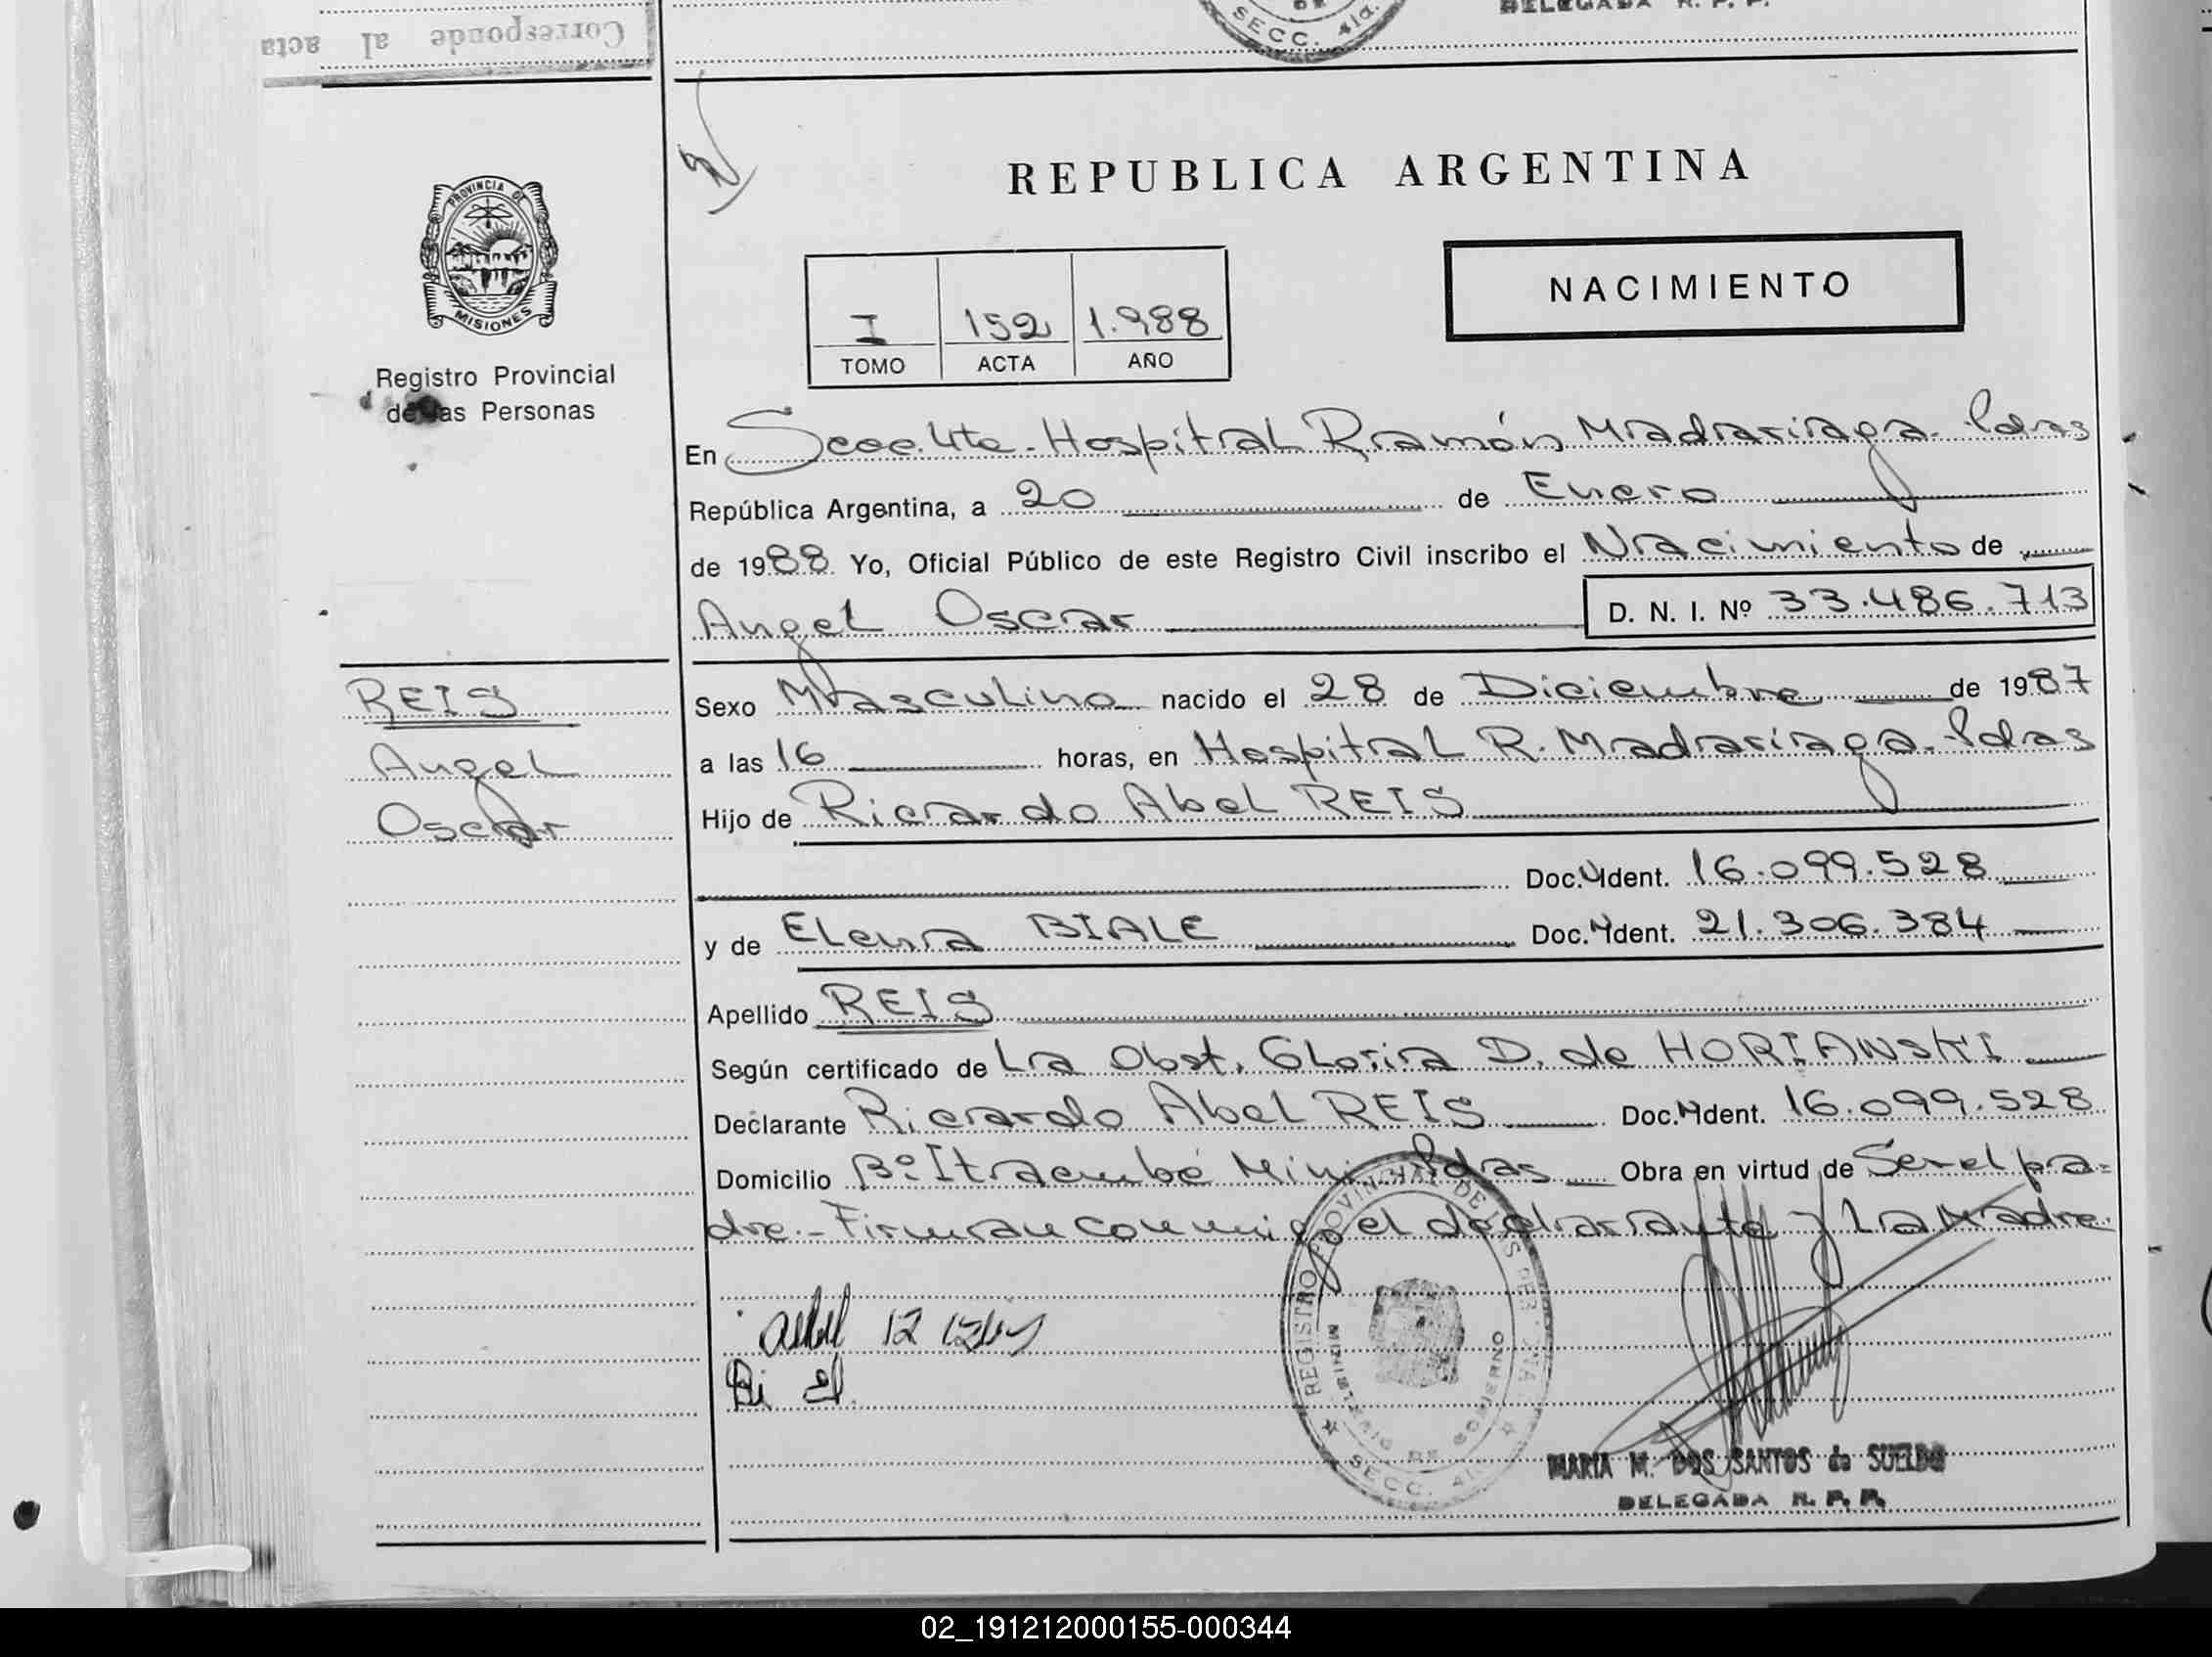 Corresponde al acta
SECC. 4ta.
DELEGADA R. P. P.
PROVINCIA DE
MISIONES
Registro Provincial
de las Personas
REPUBLICA ARGENTINA
NACIMIENTO
I 152 1.988
TOMO ACTA AÑO
En Secc. 4ta - Hospital Ramón Madariaga - Pdas
República Argentina, a 20 de Enero
de 1988 Yo, Oficial Público de este Registro Civil inscribo el Nacimiento de
Angel Oscar D. N. I. Nº 33.486.713
REIS
Angel
Oscar
Sexo Masculino nacido el 28 de Diciembre de 1987
a las 16 horas, en Hospital R. Madariaga - Pdas
Hijo de Ricardo Abel REIS
Doc. Ident. 16.099.528
y de Elena BIALE Doc. Ident. 21.306.384
Apellido REIS
Según certificado de La Obst. Gloria D. de HORIANSKI
Declarante Ricardo Abel REIS Doc. Ident. 16.099.528
Domicilio Bº Itaembé Mini Pdas Obra en virtud de Ser el pa=
dre.- Firman conmigo el declarante y La Madre.
REGISTRO PROVINCIAL DE LAS PERSONAS
MINISTERIO DE GOBIERNO
SECC. 4ta.
MARIA M. DOS SANTOS de SUELDO
DELEGADA R. P. P.
02_191212000155-000344